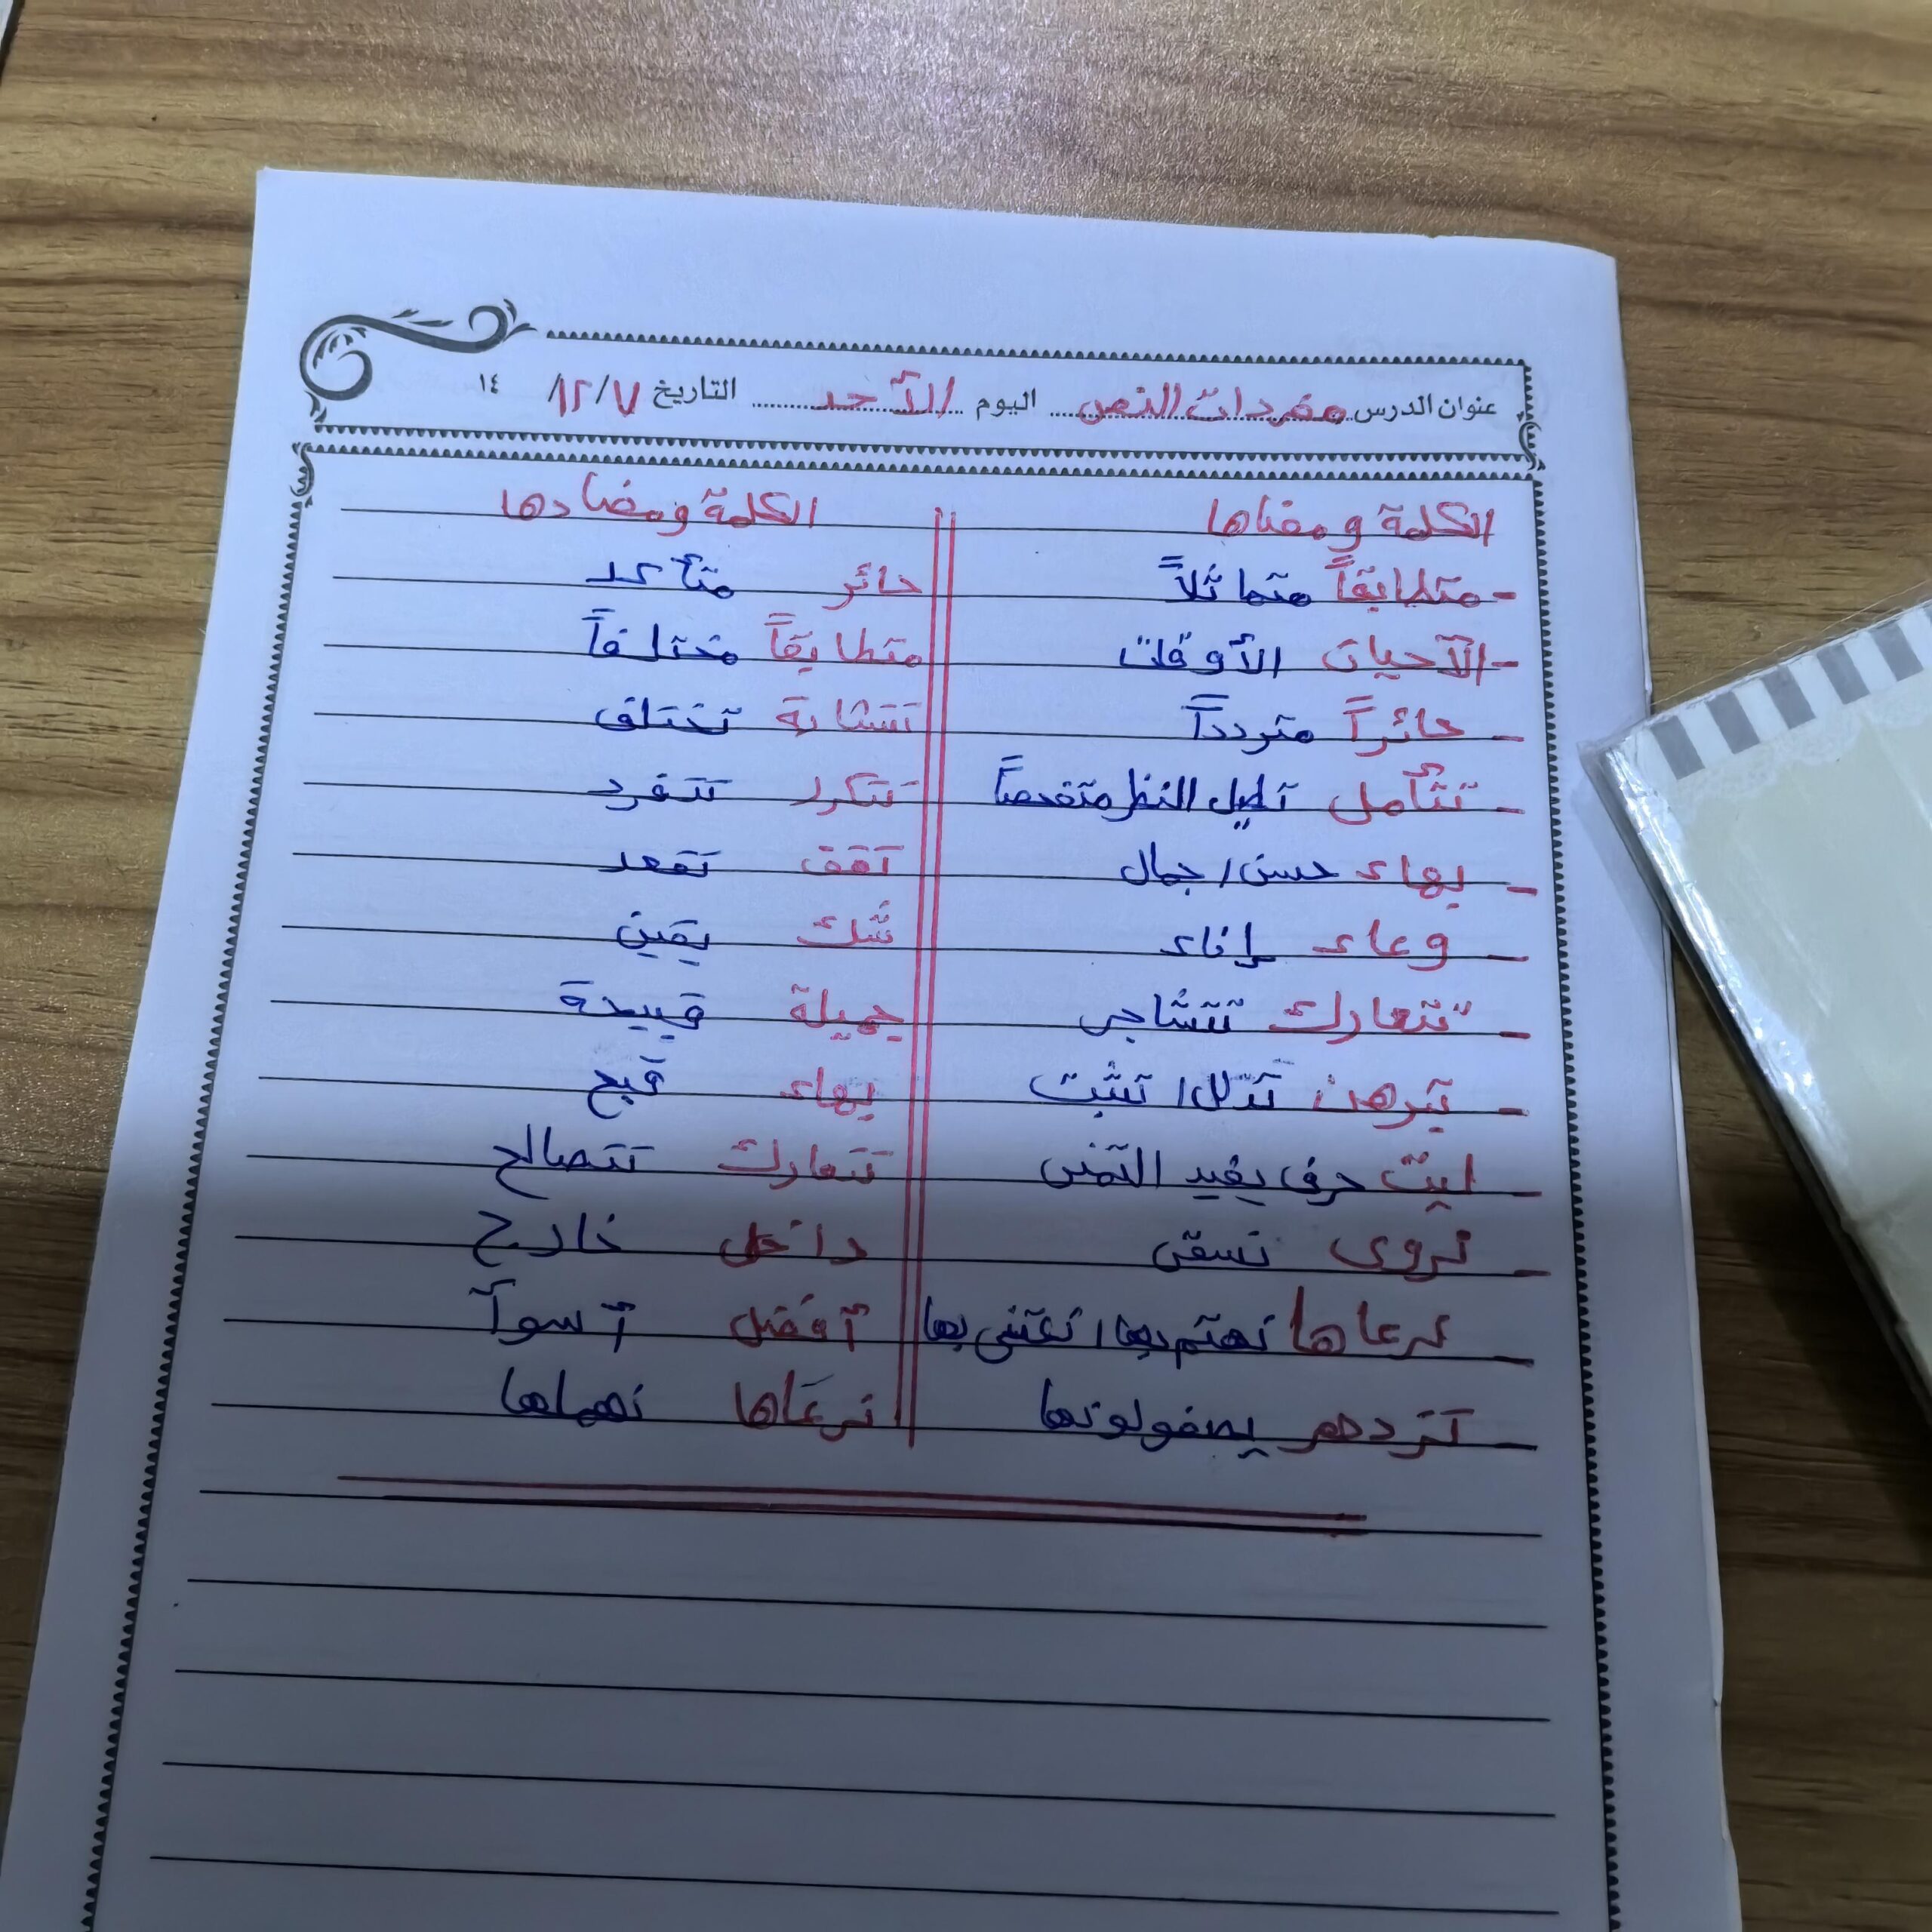 عنوان الدرس مفردات النص اليوم الأحد التاريخ ٧/١٢/ ١٤
الكلمة ومعناها الكلمة ومضادها
- متطابقاً متماثلاً حائر متأكد
- الأحيان الأوقات متطابقاً مختلفاً
- حائراً متردداً تتشابة تختلف
- تتأمل تطيل النظر متفحصاً تتكرر تتفرد
- بهاء حسن / جمال تقف تقعد
- وعاء إناء شك يقين
- تتعارك تتشاجر جميلة قبيحة
- تبرهن تدلل / تثبت بهاء قبح
- ليت حرف يفيد التمني تتعارك تتصالح
- نروى نسقى داخل خارج
- نرعاها نهتم بها / نعتني بها أفضل أسوأ
- تزدهر نرعاها نهملها